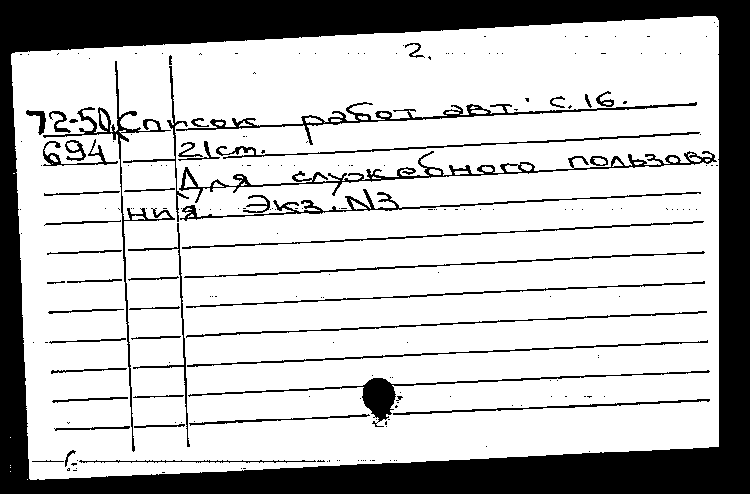 2.
72-50 Список работ авт.: с. 16.
694 21 cm.
Для служебного пользова
ния. Экз. N3